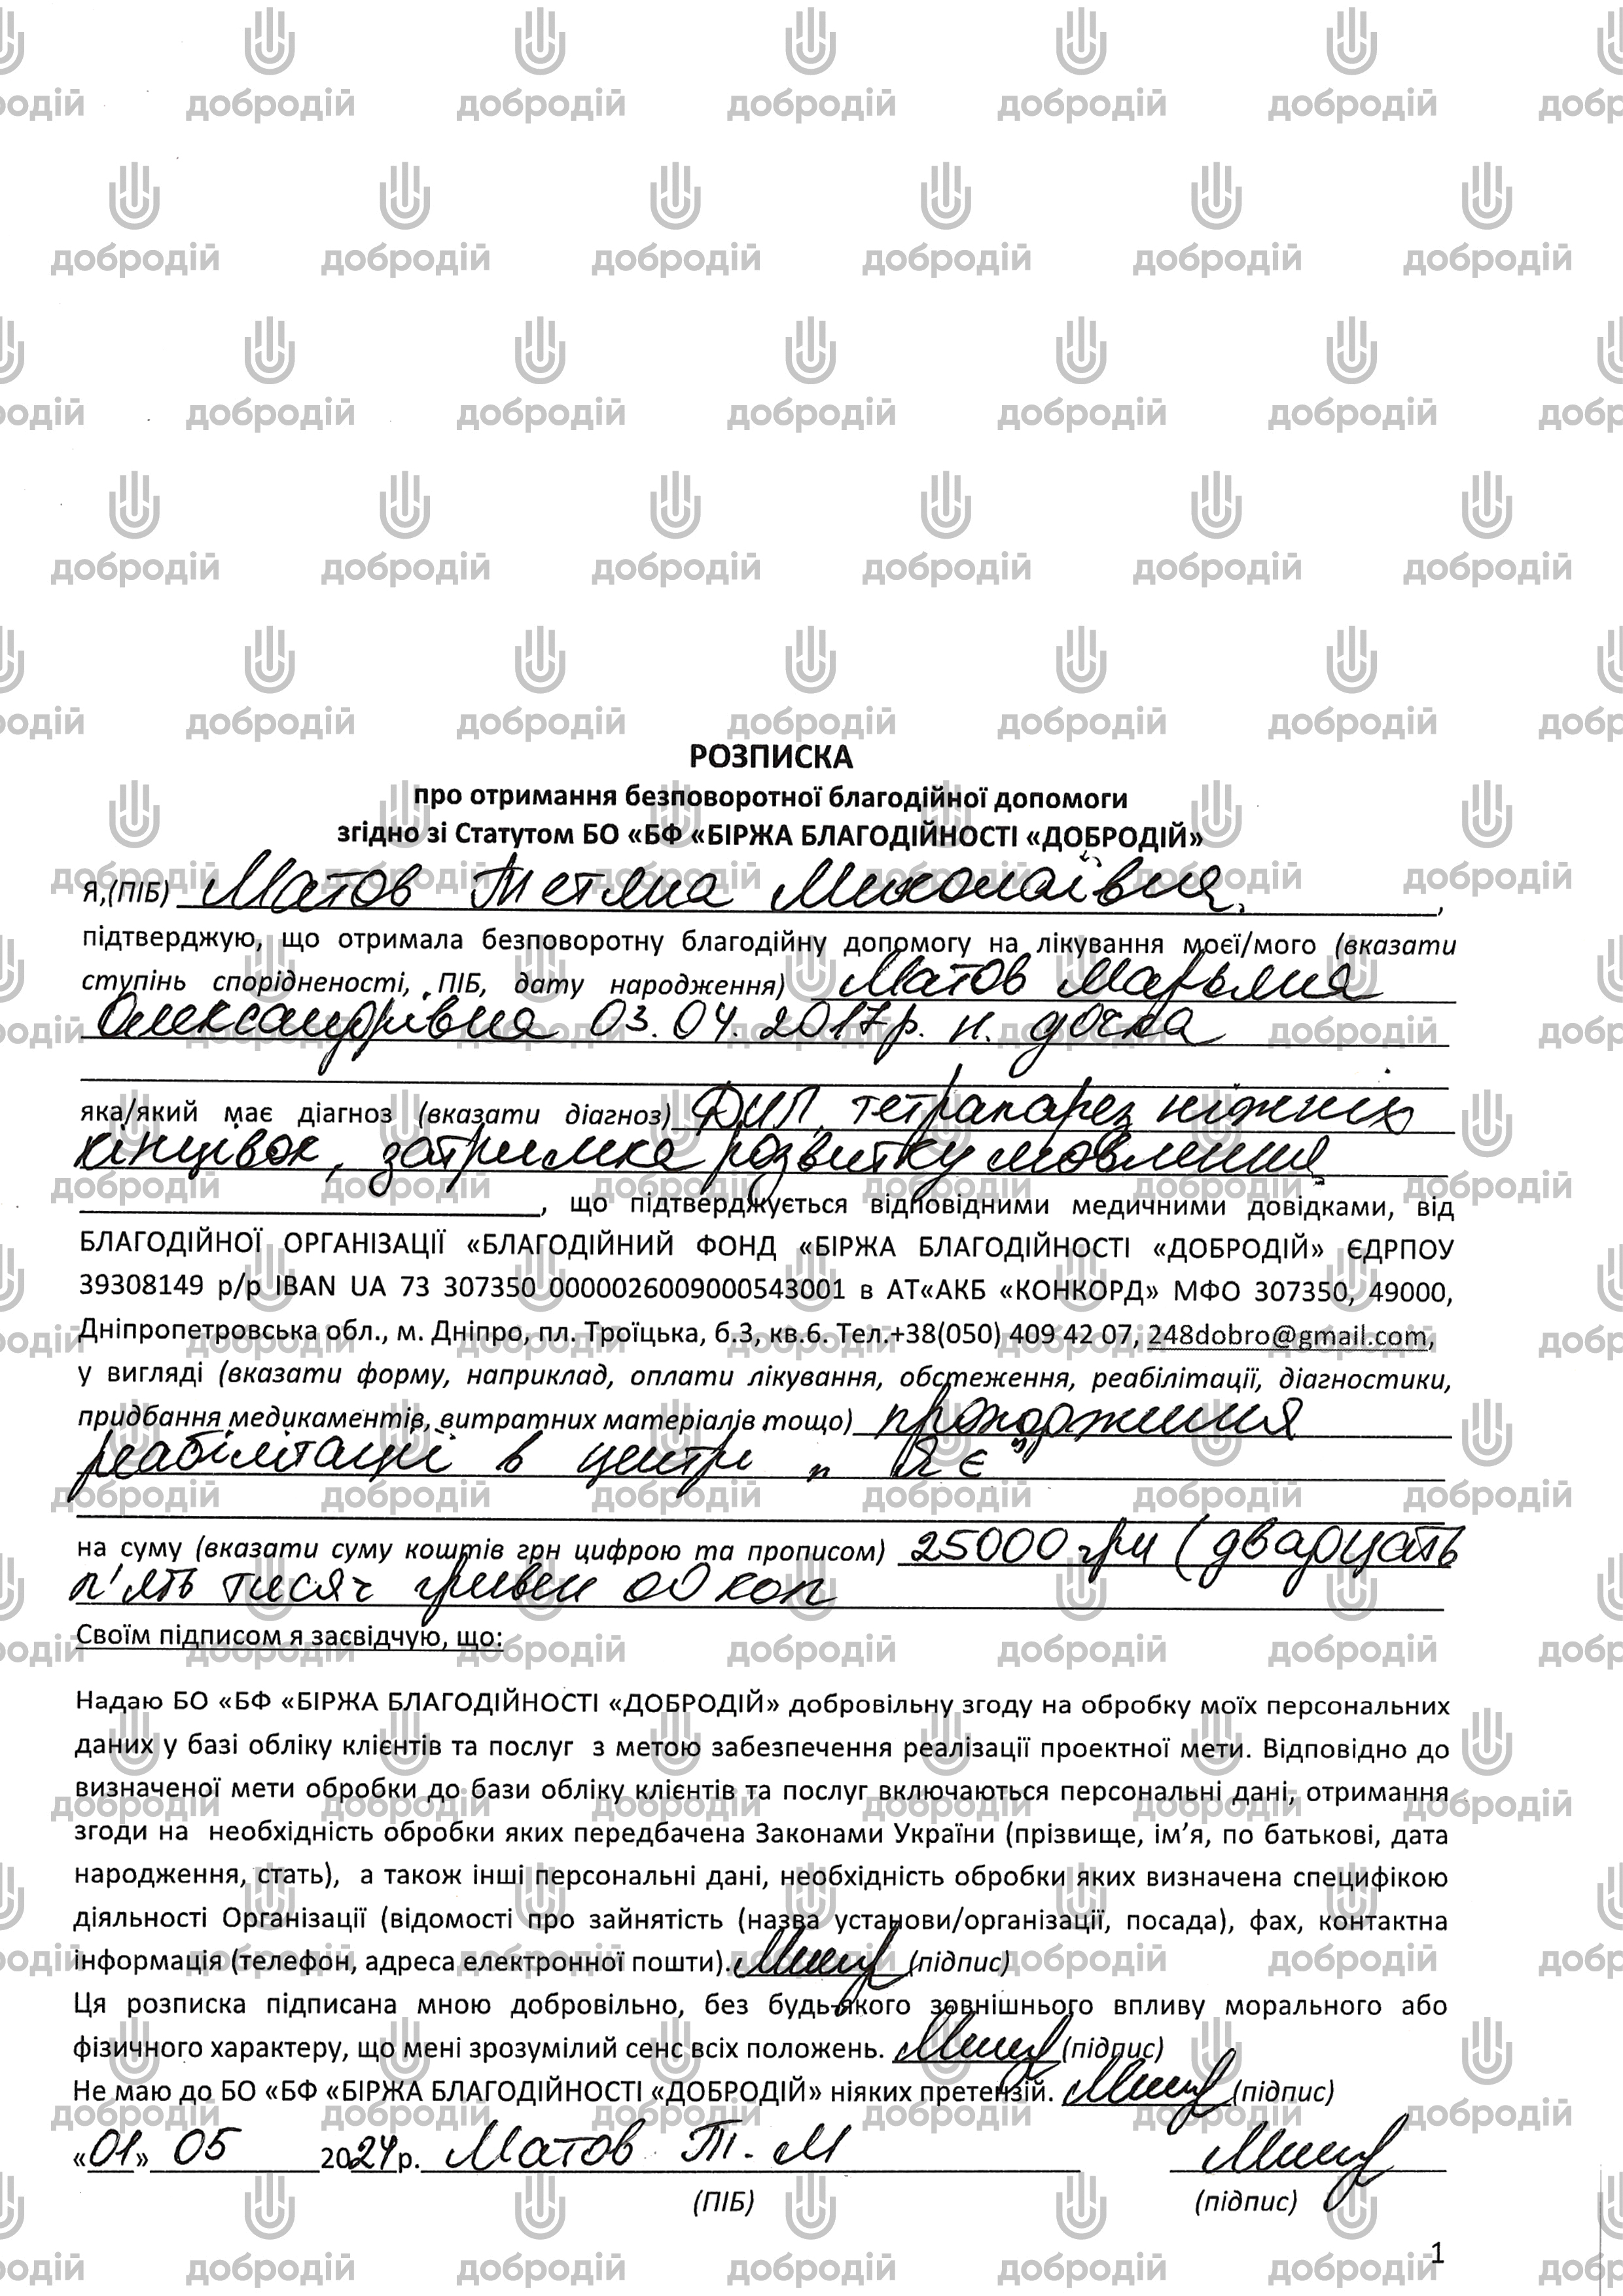 РОЗПИСКА
про отримання безповоротної благодійної допомоги
згідно зі Статутом БО «БФ «БІРЖА БЛАГОДІЙНОСТІ «ДОБРОДІЙ»
Я,(ПІБ) Матов Тетяна Миколаївна,
підтверджую, що отримала безповоротну благодійну допомогу на лікування моєї/мого (вказати
ступінь спорідненості, ПІБ, дату народження) Матов Мар'яна
Олександрівна 03.04.2017р. н. дочка
яка/який має діагноз (вказати діагноз) ДЦП, тетрапарез ніжніх
кінцівок, затримка розвитку мовлення
, що підтверджується відповідними медичними довідками, від
БЛАГОДІЙНОЇ ОРГАНІЗАЦІЇ «БЛАГОДІЙНИЙ ФОНД «БІРЖА БЛАГОДІЙНОСТІ «ДОБРОДІЙ» ЄДРПОУ
39308149 р/р IBAN UA 73 307350 0000026009000543001 в АТ«АКБ «КОНКОРД» МФО 307350, 49000,
Дніпропетровська обл., м. Дніпро, пл. Троїцька, б.3, кв.6. Тел.+38(050) 409 42 07, 248dobro@gmail.com,
у вигляді (вказати форму, наприклад, оплати лікування, обстеження, реабілітації, діагностики,
придбання медикаментів, витратних матеріалів тощо) проходження
реабілітації в центрі „Я є"
на суму (вказати суму коштів грн цифрою та прописом) 25000 грн (двадцать
п'ять тисяч гривен 00 коп
Своїм підписом я засвідчую, що:
Надаю БО «БФ «БІРЖА БЛАГОДІЙНОСТІ «ДОБРОДІЙ» добровільну згоду на обробку моїх персональних
даних у базі обліку клієнтів та послуг з метою забезпечення реалізації проектної мети. Відповідно до
визначеної мети обробки до бази обліку клієнтів та послуг включаються персональні дані, отримання
згоди на необхідність обробки яких передбачена Законами України (прізвище, ім’я, по батькові, дата
народження, стать), а також інші персональні дані, необхідність обробки яких визначена специфікою
діяльності Організації (відомості про зайнятість (назва установи/організації, посада), фах, контактна
інформація (телефон, адреса електронної пошти). (підпис)
Ця розписка підписана мною добровільно, без будь-якого зовнішнього впливу морального або
фізичного характеру, що мені зрозумілий сенс всіх положень. (підпис)
Не маю до БО «БФ «БІРЖА БЛАГОДІЙНОСТІ «ДОБРОДІЙ» ніяких претензій. (підпис)
«01» 05 2024р. Матов Т. М
(ПІБ) (підпис)
1